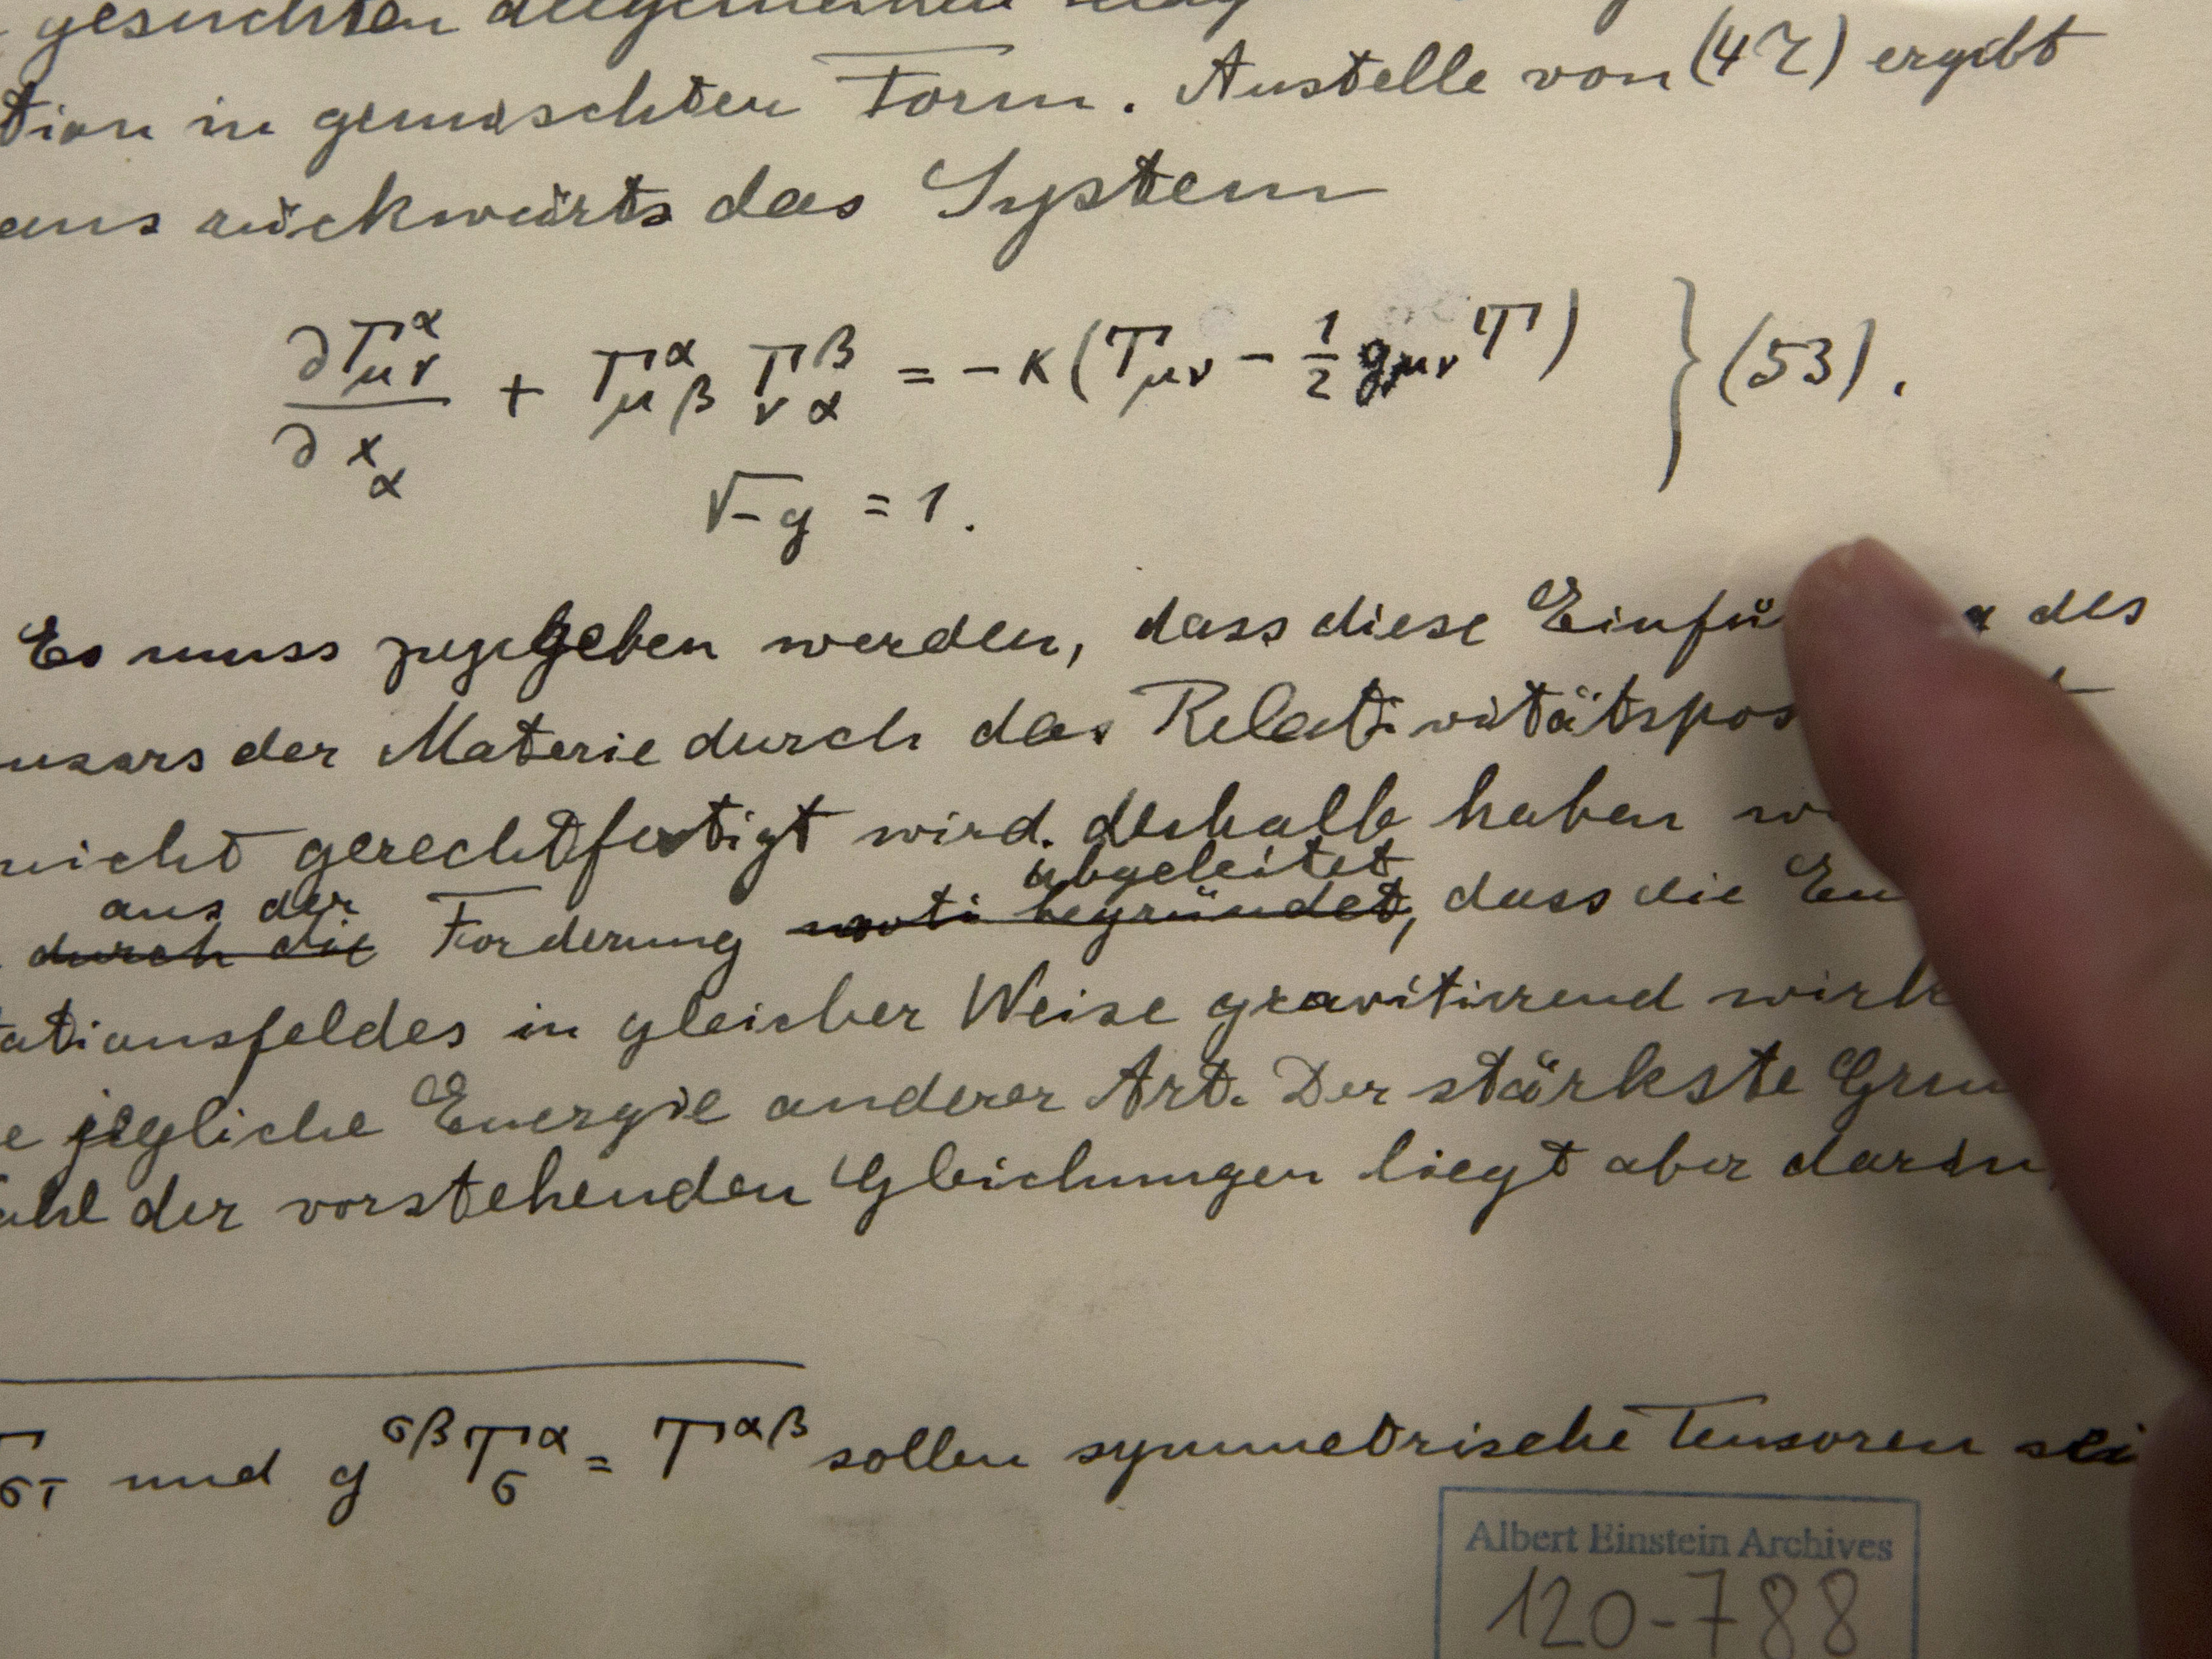 gesuchten allgemeinen
tion in gemischter Form. Anstelle von (47) ergibt
aus rückwärts das System
∂Γ^α_μν/∂x_α + Γ^α_μβ Γ^β_να = -κ(T_μν - 1/2 g_μν T) } (53).
√-g = 1.
Es muss zugegeben werden, dass diese Einfü des
nsors der Materie durch das Relativitätspos
nicht gerechtfertigt wird. deshalb haben
abgeleitet
aus der
durch die Forderung begründet, dass die En
ationsfeldes in gleicher Weise gravitierend wirk
e jegliche Energie anderer Art. Der stärkste Gru
ahl der vorstehenden Gleichungen liegt aber darin,
στ und g^σβ T^α_σ = T^αβ sollen symmetrische Tensoren sei
Albert Einstein Archives
120-788